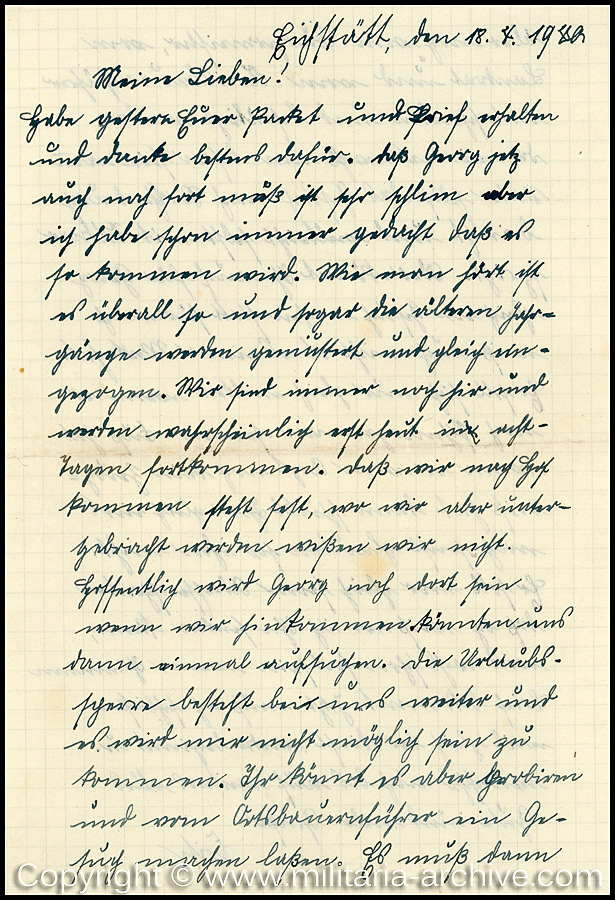 Eichstätt, den 18. 4. 1940
Meine Lieben!
Habe gestern Euer Packet und Brief erhalten
und danke bestens dafür. daß Georg jetz
auch noch fort muß ist sehr schlim aber
ich habe schon immer gedacht daß es
so kommen wird. Wie man hört ist
es überall so und sogar die älteren Jahr-
gänge werden gemustert und gleich ein-
gezogen. Wir sind immer noch hir und
werden wahrscheinlich erst heut in acht-
Tagen fortkommen. daß wir nach Hof
kommen steht fest, wo wir aber unter-
gebracht werden wißen wir nicht.
Hoffentlich wird Georg noch dort sein
wenn wir hinkommen. könnten uns
dann einmal aufsuchen. die Urlaubs-
sperre besteht bei uns weiter und
es wird mir nicht möglich sein zu
kommen. Ihr könnt es aber Probiren
und vom Ortsbauernführer ein Ge-
such machen laßen. Es muß dann
Copyright © www.militaria-archive.com